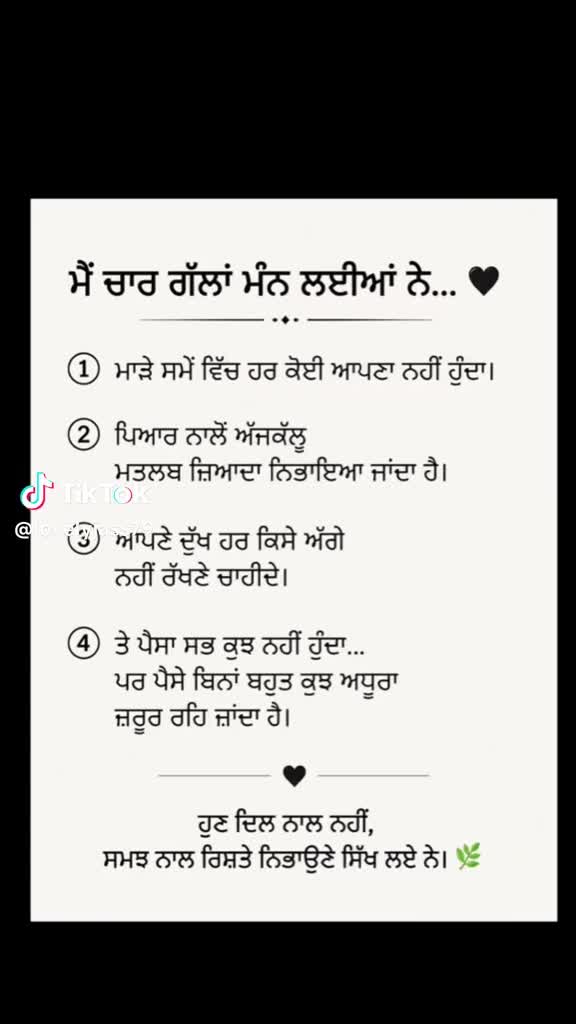 ਮੈਂ ਚਾਰ ਗੱਲਾਂ ਮੰਨ ਲਈਆਂ ਨੇ... 🖤
① ਮਾੜੇ ਸਮੇਂ ਵਿੱਚ ਹਰ ਕੋਈ ਆਪਣਾ ਨਹੀਂ ਹੁੰਦਾ।
② ਪਿਆਰ ਨਾਲੋਂ ਅੱਜਕੱਲੂ
ਮਤਲਬ ਜ਼ਿਆਦਾ ਨਿਭਾਇਆ ਜਾਂਦਾ ਹੈ।
TikTok
③ ਆਪਣੇ ਦੁੱਖ ਹਰ ਕਿਸੇ ਅੱਗੇ
ਨਹੀਂ ਰੱਖਣੇ ਚਾਹੀਦੇ।
④ ਤੇ ਪੈਸਾ ਸਭ ਕੁਝ ਨਹੀਂ ਹੁੰਦਾ...
ਪਰ ਪੈਸੇ ਬਿਨਾਂ ਬਹੁਤ ਕੁਝ ਅਧੂਰਾ
ਜ਼ਰੂਰ ਰਹਿ ਜ਼ਾਂਦਾ ਹੈ।
ਹੁਣ ਦਿਲ ਨਾਲ ਨਹੀਂ,
ਸਮਝ ਨਾਲ ਰਿਸ਼ਤੇ ਨਿਭਾਉਣੇ ਸਿੱਖ ਲਏ ਨੇ। 🌿